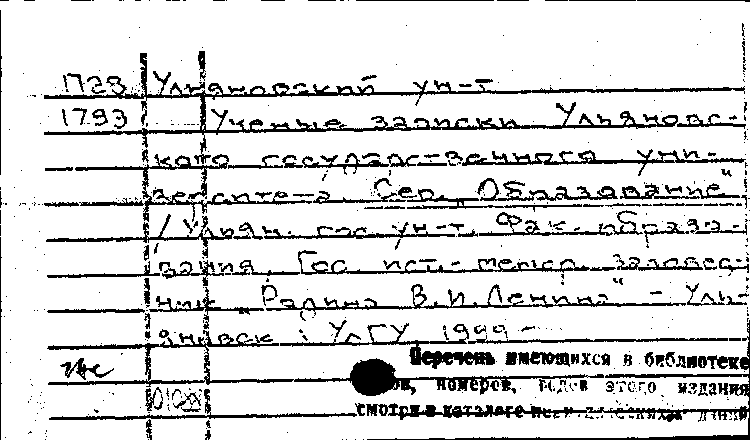 П28 Ульяновский ун-т
1793 Ученые записки Ульяновс-
кого государственного уни-
верситета. Сер. „Образование"
/ Ульян. гос. ун-т. Фак. образо-
вания, Гос. ист.-мемор. заповед-
ник „Родина В.И. Ленина" - Уль-
яновск: УлГУ, 1999 -
Перечень имеющихся в библиотеке
номеров, годов этого издания
смотри в каталоге изданий